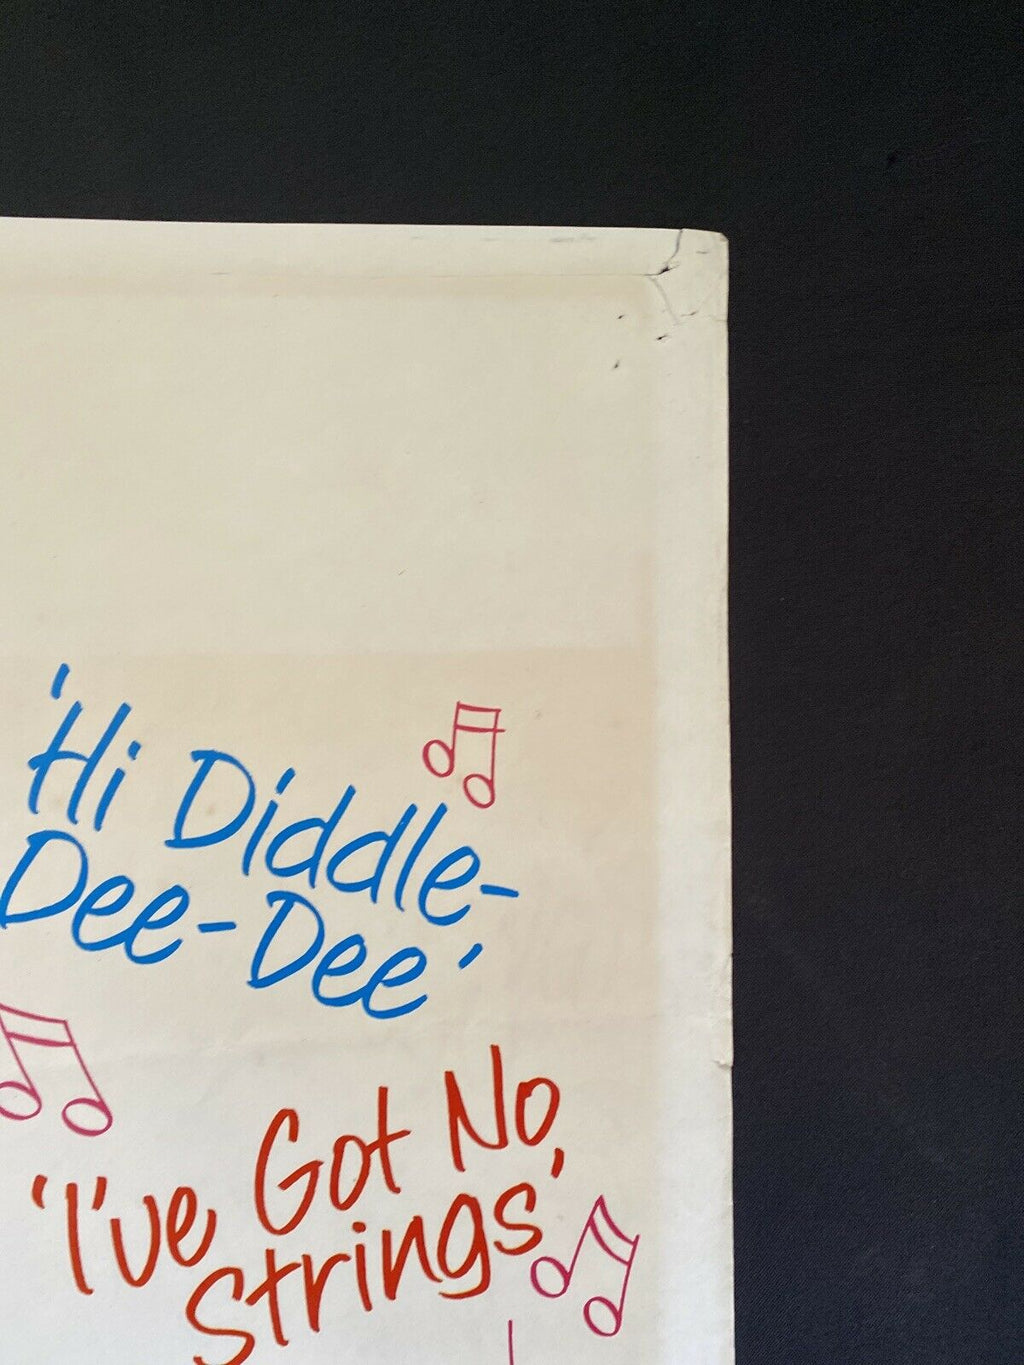 'Hi Diddle-
Dee-Dee'
'I've Got No
Strings'